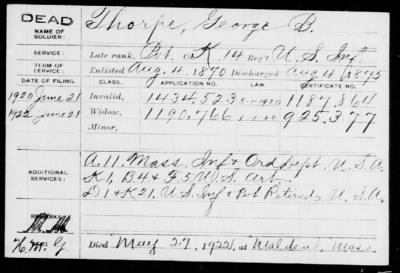 DEAD
NAME OF SOLDIER:
Thorpe, George B.
SERVICE:
Late rank, Pvt. K, 14 Reg't U.S. Inf.
TERM OF SERVICE:
Enlisted Aug. 4, 1870 Discharged Aug 4, 1875
DATE OF FILING. CLASS. APPLICATION NO. LAW CERTIFICATE NO.
1920 June 21 Invalid, 1434,523 1187,864
1922 June 21 Widow, 1190,766 925,377
Minor,
ADDITIONAL SERVICES:
A. 11, Mass. Inf & Ord Dept. U.S.A.
K1, B4 & F5, U.S. Art.
D1 & K21, U.S. Inf & Pvt Retired U.S.A.
REMARKS:
Died May 27, 1922, at Malden, Mass.